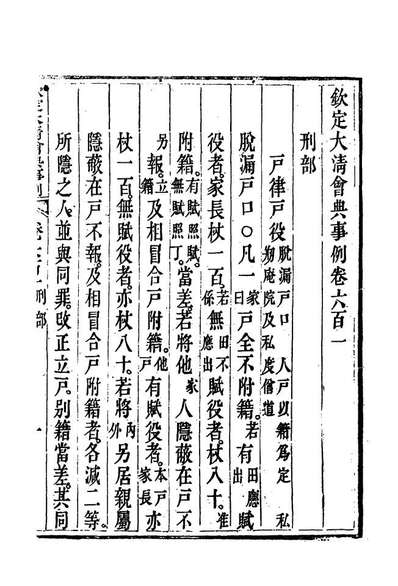 欽定大清會典事例卷六百一
刑部
戶律戶役 脫漏戶口 人戶以籍爲定 私刱庵院及私度僧道
脫漏戶口○凡一家曰戶全不附籍。若有田應出賦
役者。家長杖一百。若係無田不應出賦役者。杖八十。准
附籍。有賦照賦。無賦照丁。當差。若將他家人隱蔽在戶不
另報。立籍及相冒合戶附籍。他戶有賦役者。本戶家長亦
杖一百。無賦役者。亦杖八十。若將內外另居親屬
隱蔽在戶不報。及相冒合戶附籍者。各減二等。
所隱之人。並與同罪。改正立戶。別籍當差。其同
定大清會典事例 刑部 一